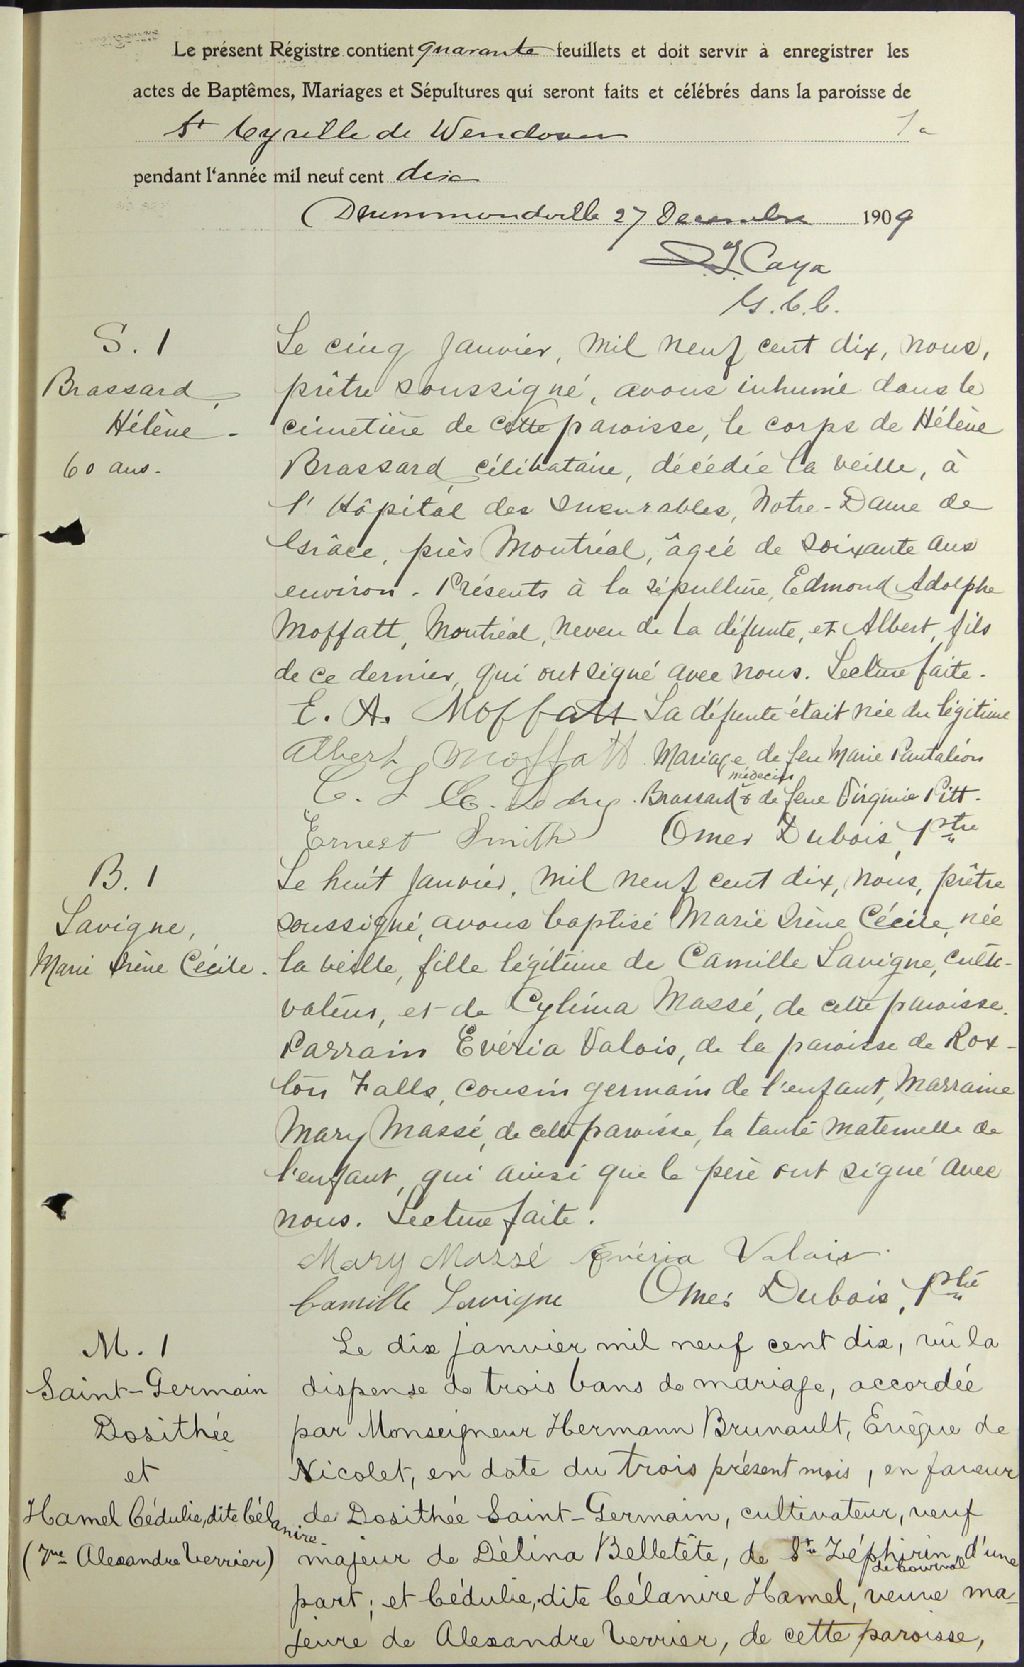 Le présent Régistre contient quarante feuillets et doit servir à enregistrer les
actes de Baptêmes, Mariages et Sépultures qui seront faits et célébrés dans la paroisse de
St Cyrille de Wendover
pendant l'année mil neuf cent dix
Drummondville 27 Decembre 1909
Caya
S. 1
Brassard,
Hélène.
60 ans.
Le cinq janvier, mil neuf cent dix, nous,
prêtre soussigné, avons inhumé dans le
cimetière de cette paroisse, le corps de Hélène
Brassard, célibataire, décédée la veille, à
l'Hôpital des Incurables, Notre-Dame de
Grâce, près Montréal, âgée de soixante ans
environ. Présents à la sépulture, Edmond Adolphe
Moffatt, Montréal, neveu de la défunte, et Albert, fils
de ce dernier, qui ont signé avec nous. Lecture faite.
E. A. Moffatt La défunte était née du légitime
Albert Moffatt Mariage de feu Marie Pantaléon
Brassard médecin & de feue Virginie Pitt.
Ernest Smith Omer Dubois, Ptre
B. 1
Lavigne,
Marie Irène Cécile.
Le huit janvier, mil neuf cent dix, nous, prêtre
soussigné, avons baptisé Marie Irène Cécile, née
la veille, fille légitime de Camille Lavigne, culti-
vateur, et de Cylima Massé, de cette paroisse.
Parrain Evéria Valois, de la paroisse de Rox-
ton Falls, cousin germain de l'enfant, Marraine
Mary Massé, de cette paroisse, la tante maternelle de
l'enfant, qui ainsi que le père ont signé avec
nous. Lecture faite.
Mary Massé Evéria Valois
Camille Lavigne Omer Dubois, Ptre
M. 1
Saint-Germain
Dosithée
et
Hamel Cédulie, dite Célanire.
(Vve Alexandre Verrier)
Le dix janvier mil neuf cent dix, vu la
dispense de trois bans de mariage, accordée
par Monseigneur Hermann Brunault, Evêque de
Nicolet, en date du trois présent mois, en faveur
de Dosithée Saint-Germain, cultivateur, veuf
majeur de Délina Belletête, de St Zéphirin de Courval, d'une
part; et Cédulie, dite Célanire Hamel, veuve ma-
jeure de Alexandre Verrier, de cette paroisse,